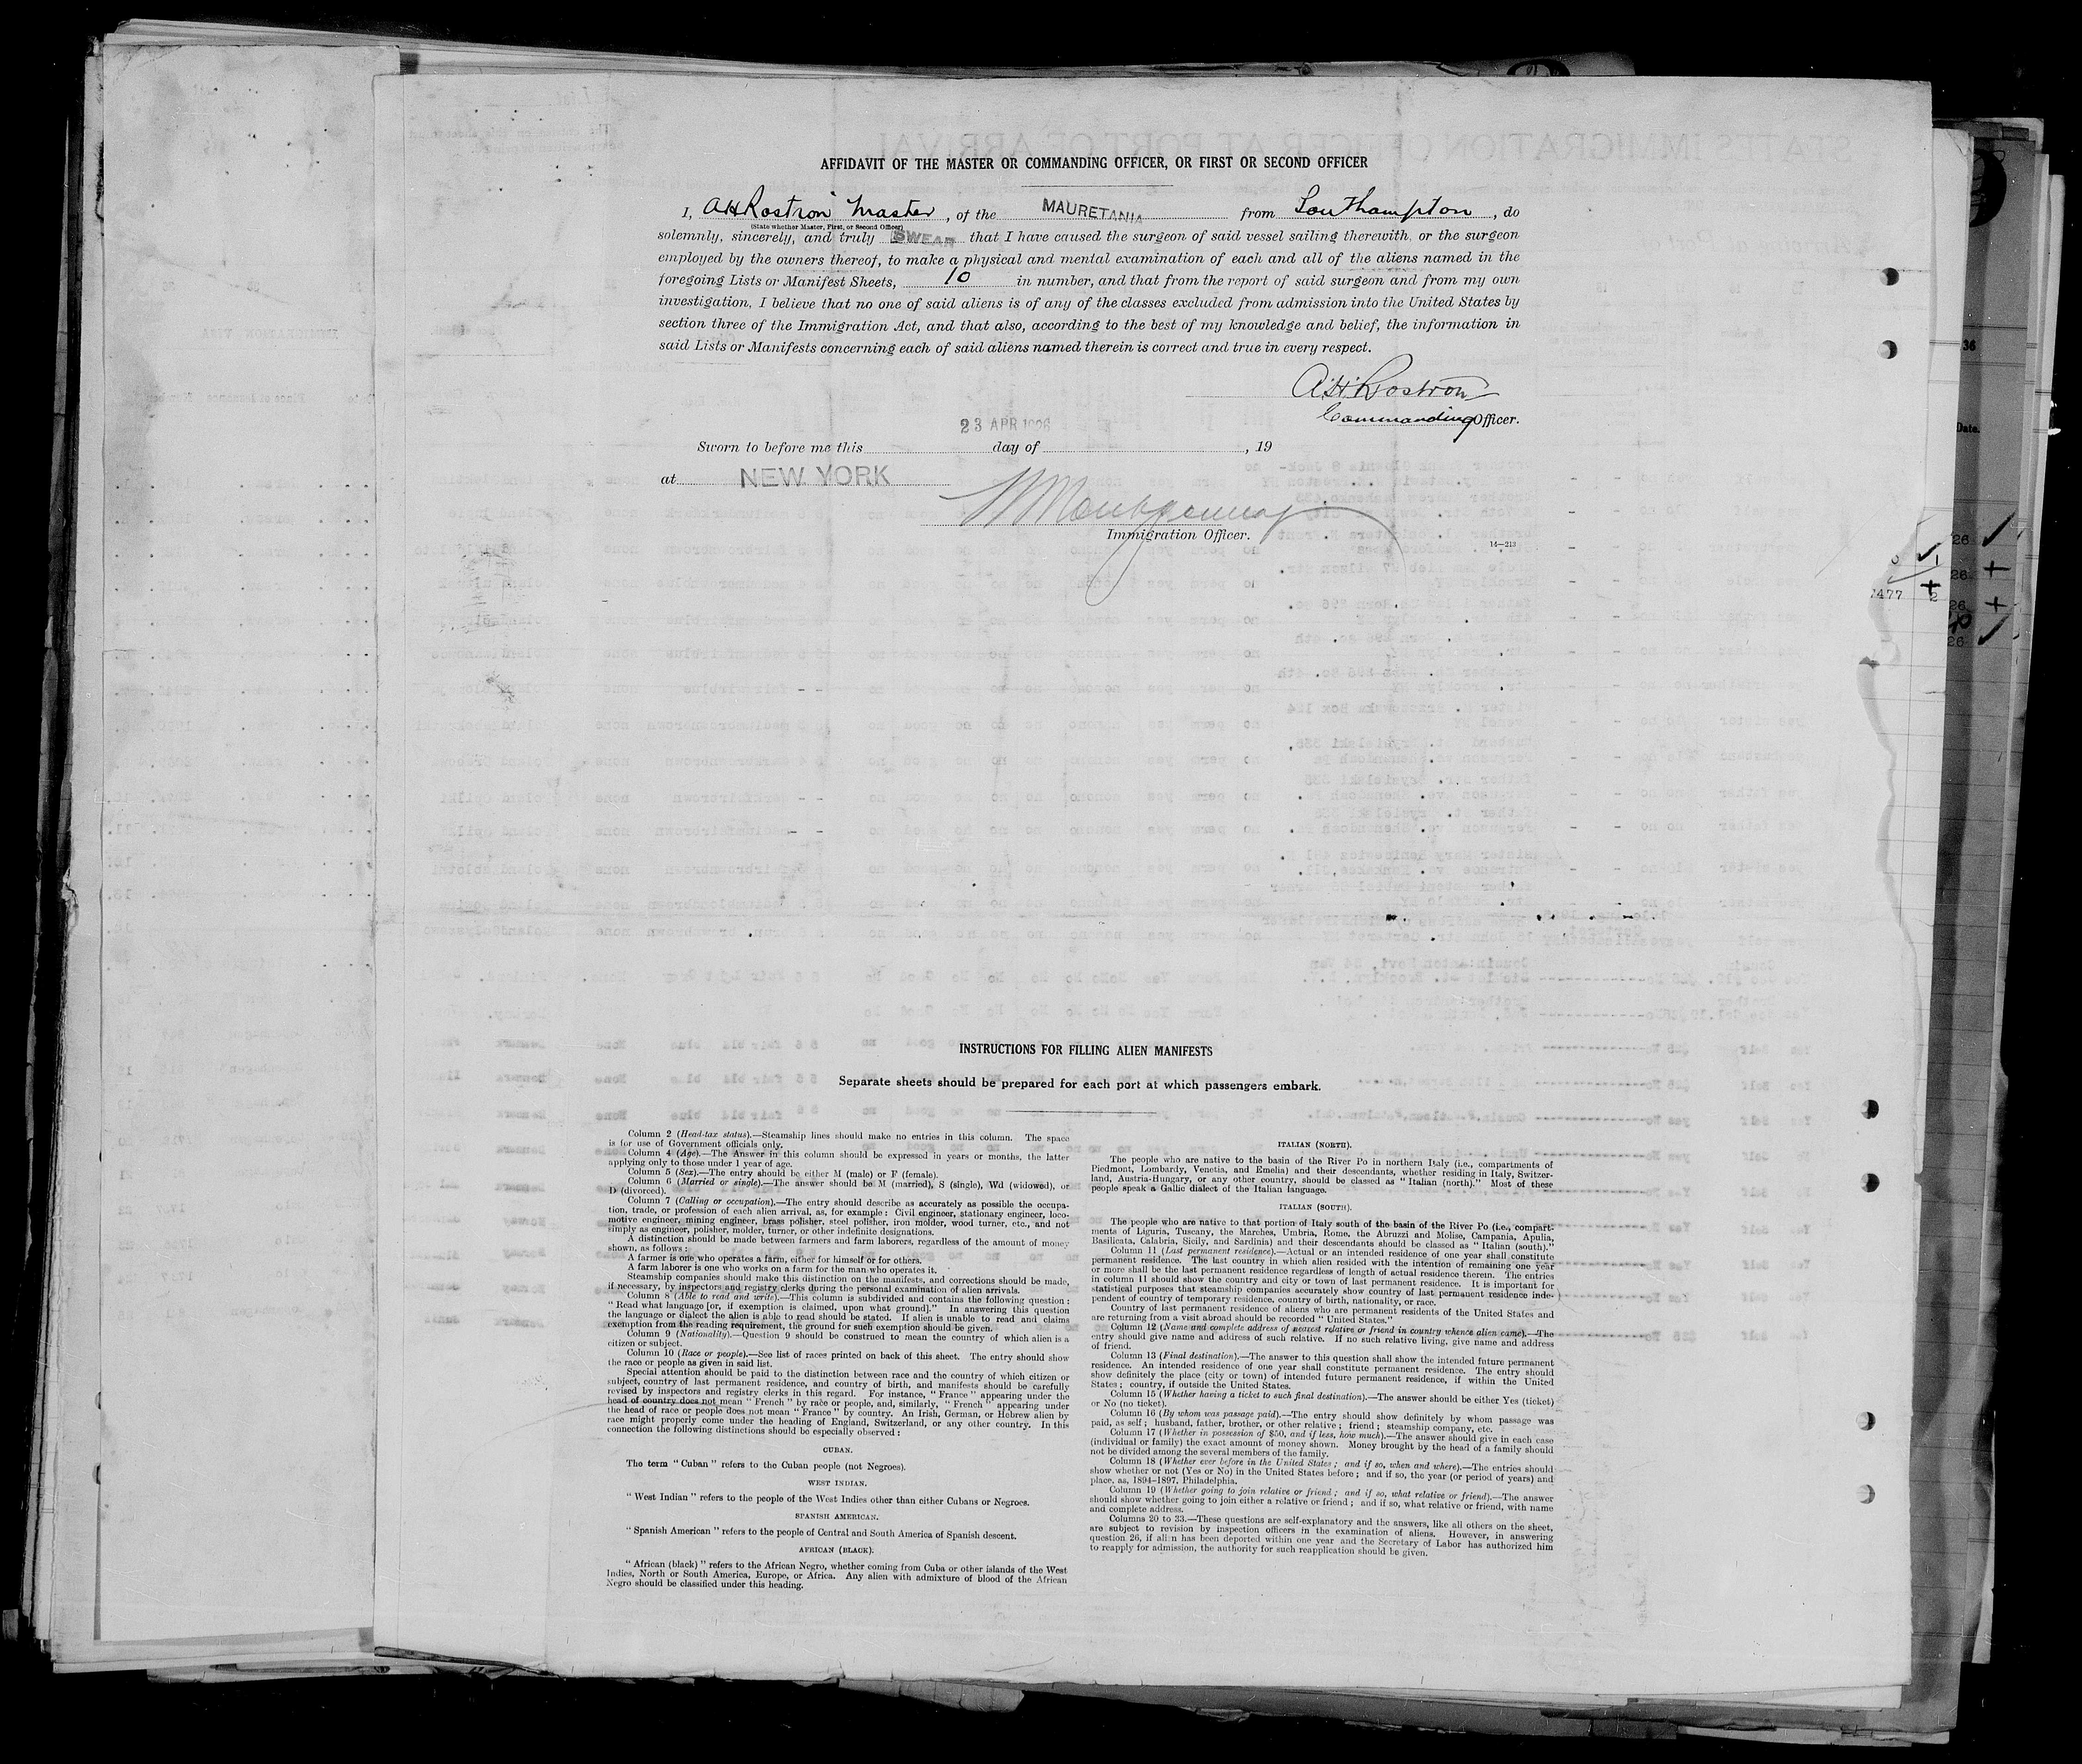 AFFIDAVIT OF THE MASTER OR COMMANDING OFFICER, OR FIRST OR SECOND OFFICER
I, A H Rostron Master, of the MAURETANIA from Southampton, do
(State whether Master, First, or Second Officer)
solemnly, sincerely, and truly SWEAR that I have caused the surgeon of said vessel sailing therewith, or the surgeon
employed by the owners thereof, to make a physical and mental examination of each and all of the aliens named in the
foregoing Lists or Manifest Sheets, 10 in number, and that from the report of said surgeon and from my own
investigation, I believe that no one of said aliens is of any of the classes excluded from admission into the United States by
section three of the Immigration Act, and that also, according to the best of my knowledge and belief, the information in
said Lists or Manifests concerning each of said aliens named therein is correct and true in every respect.
A.H. Rostron
Commanding Officer.
23 APR 1926
Sworn to before me this day of , 19
at NEW YORK
Immigration Officer.
14—213
INSTRUCTIONS FOR FILLING ALIEN MANIFESTS
Separate sheets should be prepared for each port at which passengers embark.
Column 2 (Head-tax status).—Steamship lines should make no entries in this column. The space
is for use of Government officials only.
Column 4 (Age).—The Answer in this column should be expressed in years or months, the latter
applying only to those under 1 year of age.
Column 5 (Sex).—The entry should be either M (male) or F (female).
Column 6 (Married or single).—The answer should be M (married), S (single), Wd (widowed), or
D (divorced).
Column 7 (Calling or occupation).—The entry should describe as accurately as possible the occupa-
tion, trade, or profession of each alien arrival, as, for example: Civil engineer, stationary engineer, loco-
motive engineer, mining engineer, brass polisher, steel polisher, iron molder, wood turner, etc., and not
simply as engineer, polisher, molder, turner, or other indefinite designations.
A distinction should be made between farmers and farm laborers, regardless of the amount of money
shown, as follows:
A farmer is one who operates a farm, either for himself or for others.
A farm laborer is one who works on a farm for the man who operates it.
Steamship companies should make this distinction on the manifests, and corrections should be made,
if necessary, by inspectors and registry clerks during the personal examination of alien arrivals.
Column 8 (Able to read and write).—This column is subdivided and contains the following question:
"Read what language [or, if exemption is claimed, upon what ground]." In answering this question
the language or dialect the alien is able to read should be stated. If alien is unable to read and claims
exemption from the reading requirement, the ground for such exemption should be given.
Column 9 (Nationality).—Question 9 should be construed to mean the country of which alien is a
citizen or subject.
Column 10 (Race or people).—See list of races printed on back of this sheet. The entry should show
the race or people as given in said list.
Special attention should be paid to the distinction between race and the country of which citizen or
subject, country of last permanent residence, and country of birth, and manifests should be carefully
revised by inspectors and registry clerks in this regard. For instance, "France" appearing under the
head of country does not mean "French" by race or people, and, similarly, "French" appearing under
the head of race or people does not mean "France" by country. An Irish, German, or Hebrew alien by
race might properly come under the heading of England, Switzerland, or any other country. In this
connection the following distinctions should be especially observed:
CUBAN.
The term "Cuban" refers to the Cuban people (not Negroes).
WEST INDIAN.
"West Indian" refers to the people of the West Indies other than either Cubans or Negroes.
SPANISH AMERICAN.
"Spanish American" refers to the people of Central and South America of Spanish descent.
AFRICAN (BLACK).
"African (black)" refers to the African Negro, whether coming from Cuba or other islands of the West
Indies, North or South America, Europe, or Africa. Any alien with admixture of blood of the African
Negro should be classified under this heading.
ITALIAN (NORTH).
The people who are native to the basin of the River Po in northern Italy (i.e., compartments of
Piedmont, Lombardy, Venetia, and Emelia) and their descendants, whether residing in Italy, Switzer-
land, Austria-Hungary, or any other country, should be classed as "Italian (north)." Most of these
people speak a Gallic dialect of the Italian language.
ITALIAN (SOUTH).
The people who are native to that portion of Italy south of the basin of the River Po (i.e., compart-
ments of Liguria, Tuscany, the Marches, Umbria, Rome, the Abruzzi and Molise, Campania, Apulia,
Basilicata, Calabria, Sicily, and Sardinia) and their descendants should be classed as "Italian (south)."
Column 11 (Last permanent residence).—Actual or an intended residence of one year shall constitute
permanent residence. The last country in which alien resided with the intention of remaining one year
or more shall be the last permanent residence regardless of length of actual residence therein. The entries
in column 11 should show the country and city or town of last permanent residence. It is important for
statistical purposes that steamship companies accurately show country of last permanent residence inde-
pendent of country of temporary residence, country of birth, nationality, or race.
Country of last permanent residence of aliens who are permanent residents of the United States and
are returning from a visit abroad should be recorded "United States."
Column 12 (Name and complete address of nearest relative or friend in country whence alien came).—The
entry should give name and address of such relative. If no such relative living, give name and address
of friend.
Column 13 (Final destination).—The answer to this question shall show the intended future permanent
residence. An intended residence of one year shall constitute permanent residence. The entry should
show definitely the place (city or town) of intended future permanent residence, if within the United
States; country, if outside the United States.
Column 15 (Whether having a ticket to such final destination).—The answer should be either Yes (ticket)
or No (no ticket).
Column 16 (By whom was passage paid).—The entry should show definitely by whom passage was
paid, as self; husband, father, brother, or other relative; friend; steamship company, etc.
Column 17 (Whether in possession of $50, and if less, how much).—The answer should give in each case
(individual or family) the exact amount of money shown. Money brought by the head of a family should
not be divided among the several members of the family.
Column 18 (Whether ever before in the United States; and if so, when and where).—The entries should
show whether or not (Yes or No) in the United States before; and if so, the year (or period of years) and
place, as, 1894-1897, Philadelphia.
Column 19 (Whether going to join relative or friend; and if so, what relative or friend).—The answer
should show whether going to join either a relative or friend; and if so, what relative or friend, with name
and complete address.
Columns 20 to 33.—These questions are self-explanatory and the answers, like all others on the sheet,
are subject to revision by inspection officers in the examination of aliens. However, in answering
question 26, if alien has been deported within one year and the Secretary of Labor has authorized him
to reapply for admission, the authority for such reapplication should be given.
36
Date.